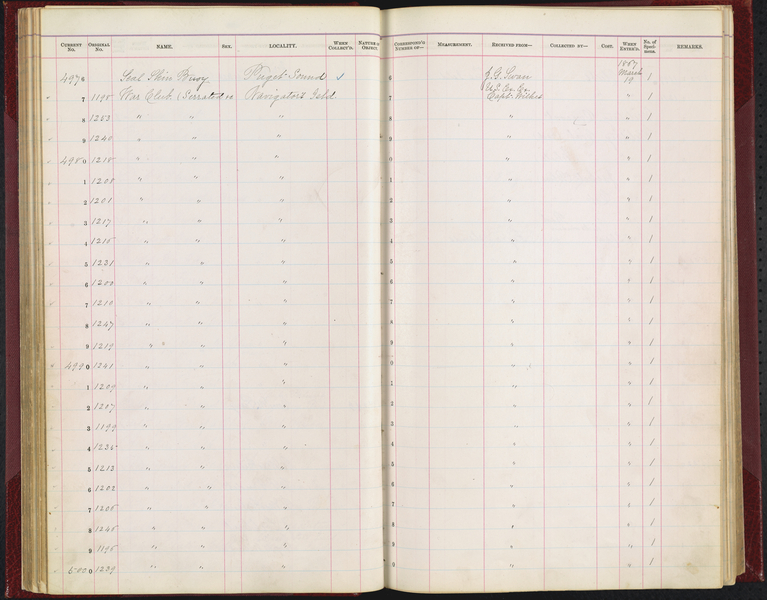 CURRENT No. ORIGINAL No. NAME. SEX. LOCALITY. WHEN COLLECT'D. NATURE OF OBJECT. CORRESPOND'G NUMBER OF— MEASUREMENT. RECEIVED FROM— COLLECTED BY— COST. WHEN ENTER'D. No. of Speci-mens. REMARKS.
4976 Seal Skin Buoy Puget Sound 6 J. G. Swan 1867 March 19 1
7 1198 War Club (Serrated) Navigator's Isld 7 U.S. Ex. Ex. Capt. Wilkes " 1
8 1253 " " " 8 " " 1
9 1240 " " " 9 " " 1
4980 1218 " " " 0 " " 1
1 1208 " " " 1 " " 1
2 1201 " " " 2 " " 1
3 1217 " " " 3 " " 1
4 1216 " " " 4 " " 1
5 1231 " " " 5 " " 1
6 1200 " " " 6 " " 1
7 1210 " " " 7 " " 1
8 1247 " " " 8 " " 1
9 1219 " " " " 9 " " 1
4990 1241 " " " 0 " " 1
1 1209 " " " 1 " " 1
2 1207 " " " 2 " " 1
3 1199 " " " 3 " " 1
4 1236 " " " 4 " " 1
5 1213 " " " 5 " " 1
6 1202 " " " 6 " " 1
7 1206 " " " 7 " " 1
8 1246 " " " 8 " " 1
9 1195 " " " 9 " " 1
5000 1239 " " " 0 " " 1